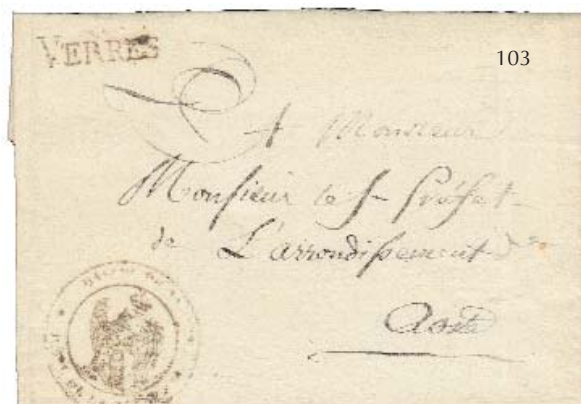 VERRES
103
A Monsieur
Monsieur le S. Préfet
de L'arrondissement d'
Aoste